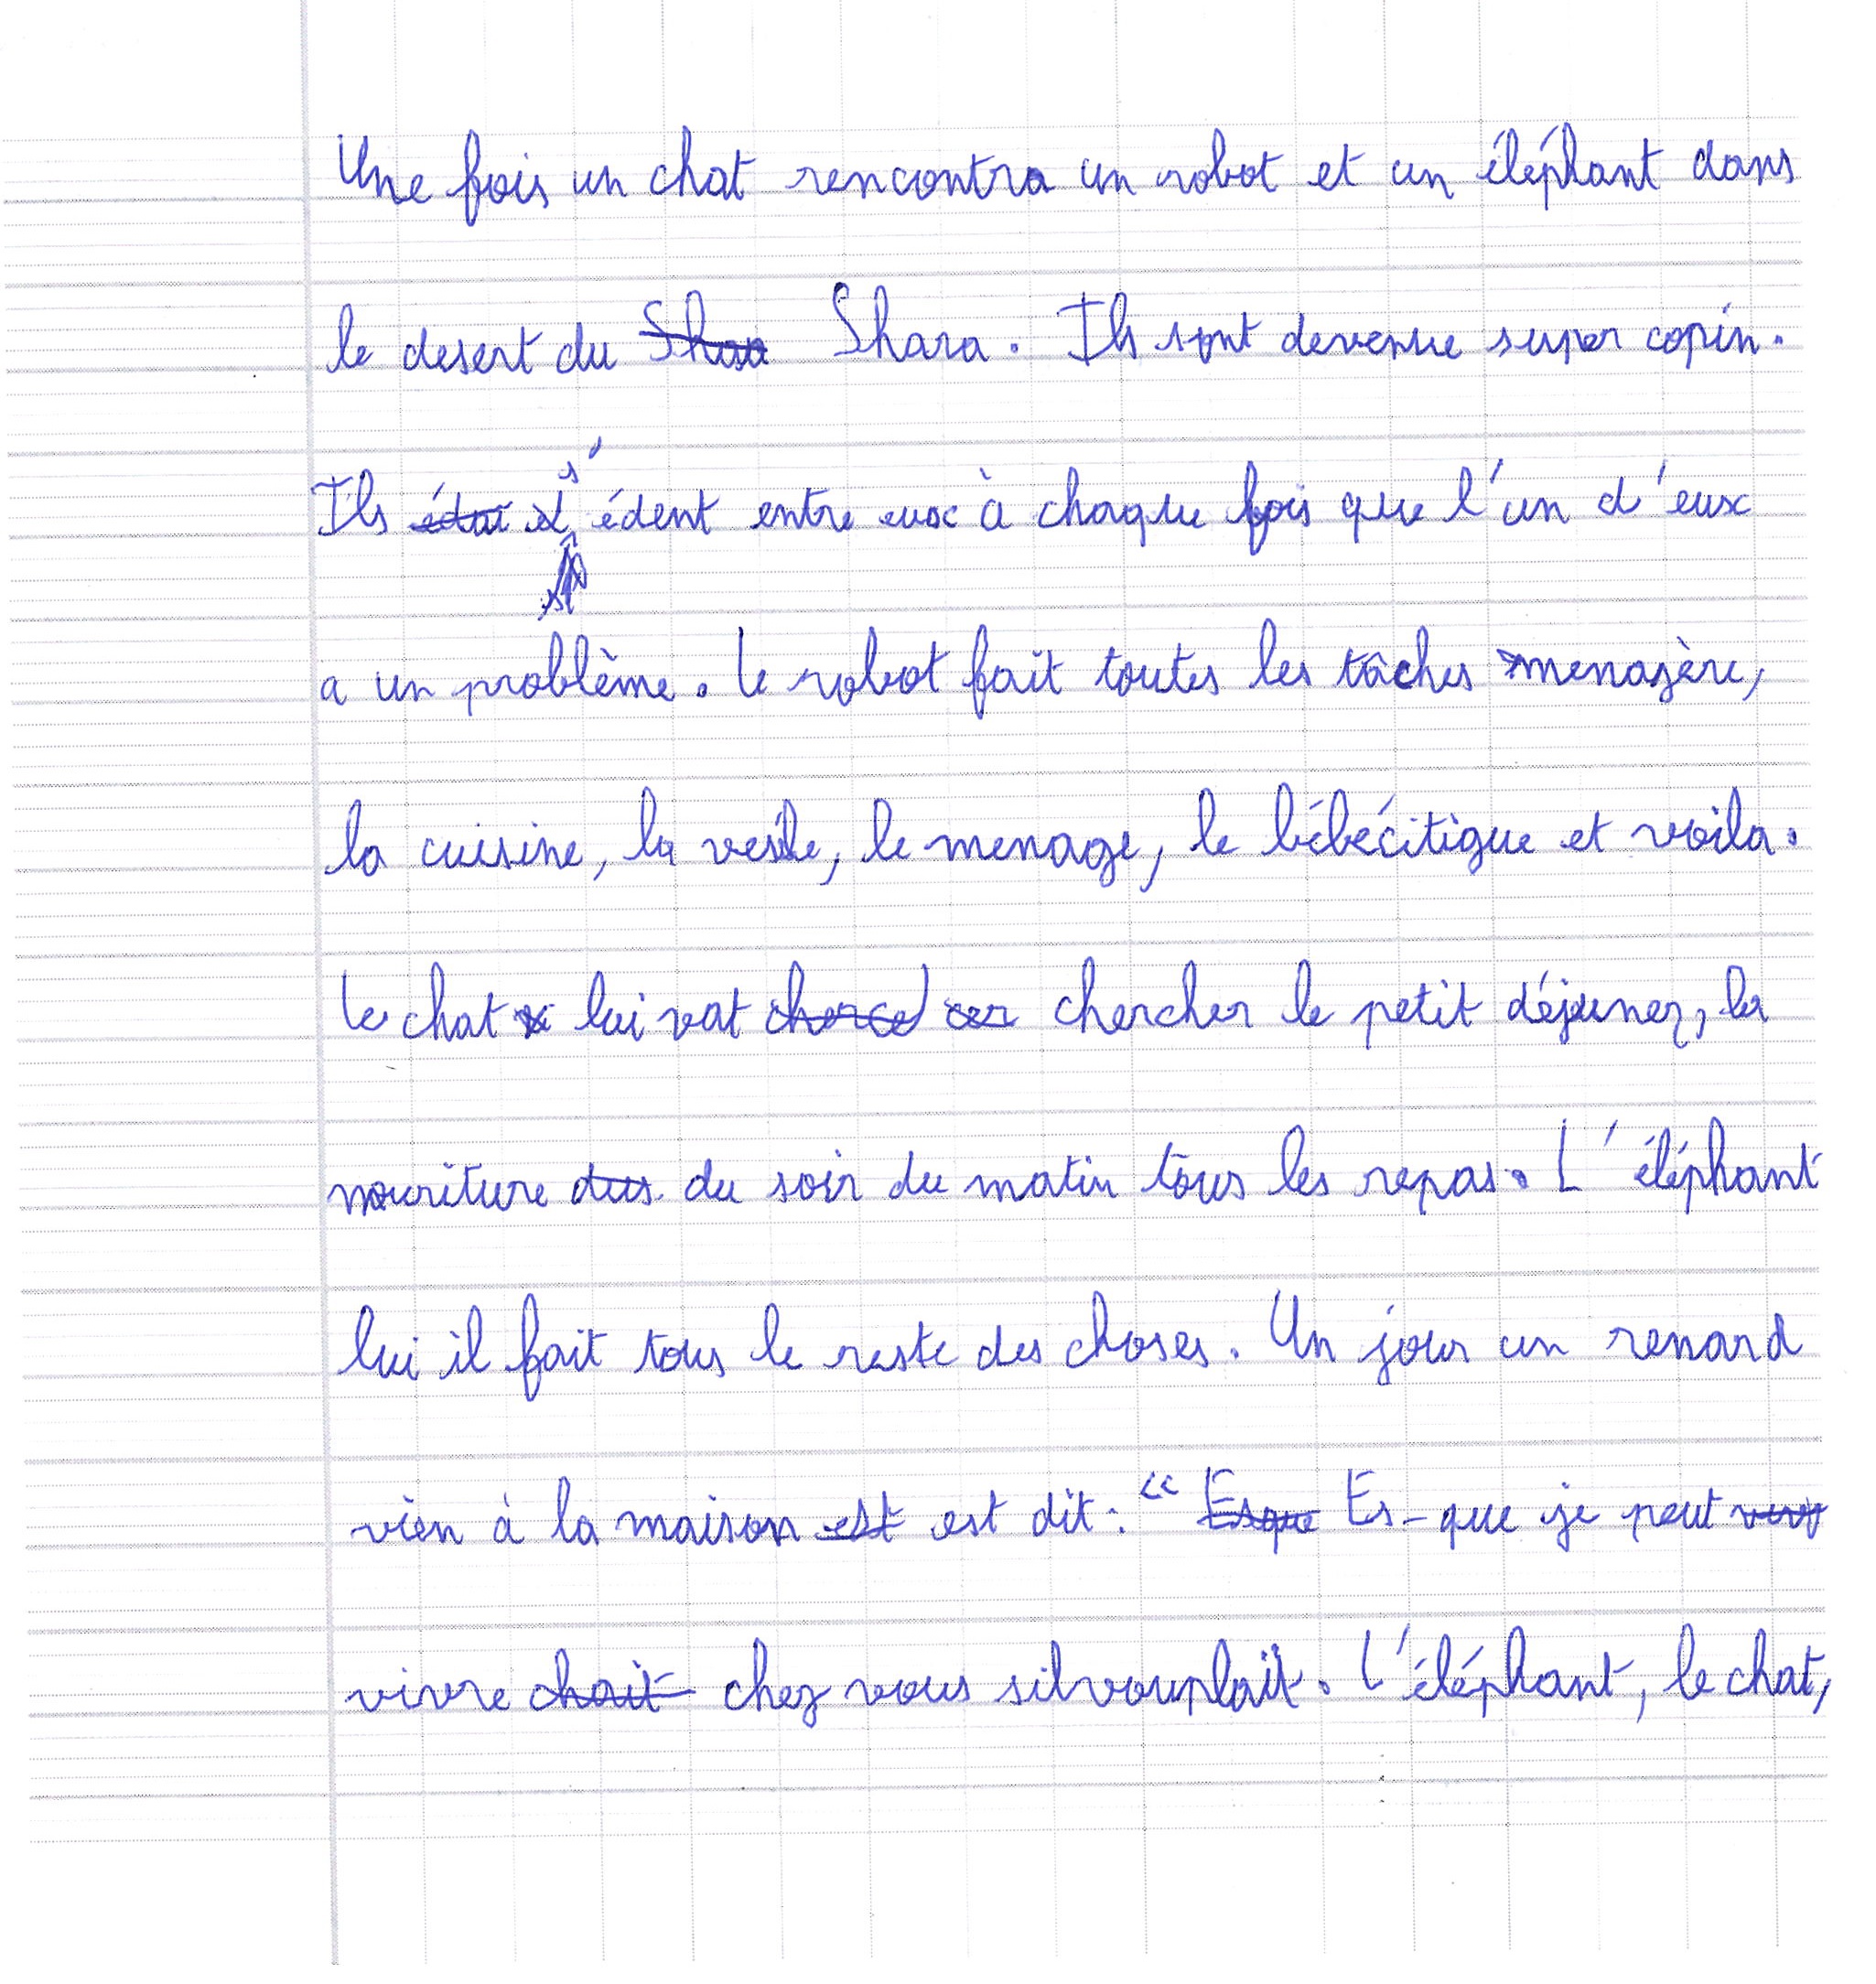 Une fois un chat rencontra un robot et un éléphant dans
le desert du Shaa Shara. Ils sont devenue super copin.
Ils édai s'édent entre eux à chaque fois que l'un d'eux
a un problème. Le robot fait toutes les tâches menagère,
la cuisine, la vesile, le menage, le bébécitigue et voila.
Le chat lui vat cherche cer chercher le petit déjeuner, la
nouriture dus du soir du matin tous les repas. L'éléphant
lui il fait tous le reste des choses. Un jour un renard
vien à la maison est est dit : " Esque Es-que je peut
vivre chait chez vous silvouplaît. L'éléphant, le chat,